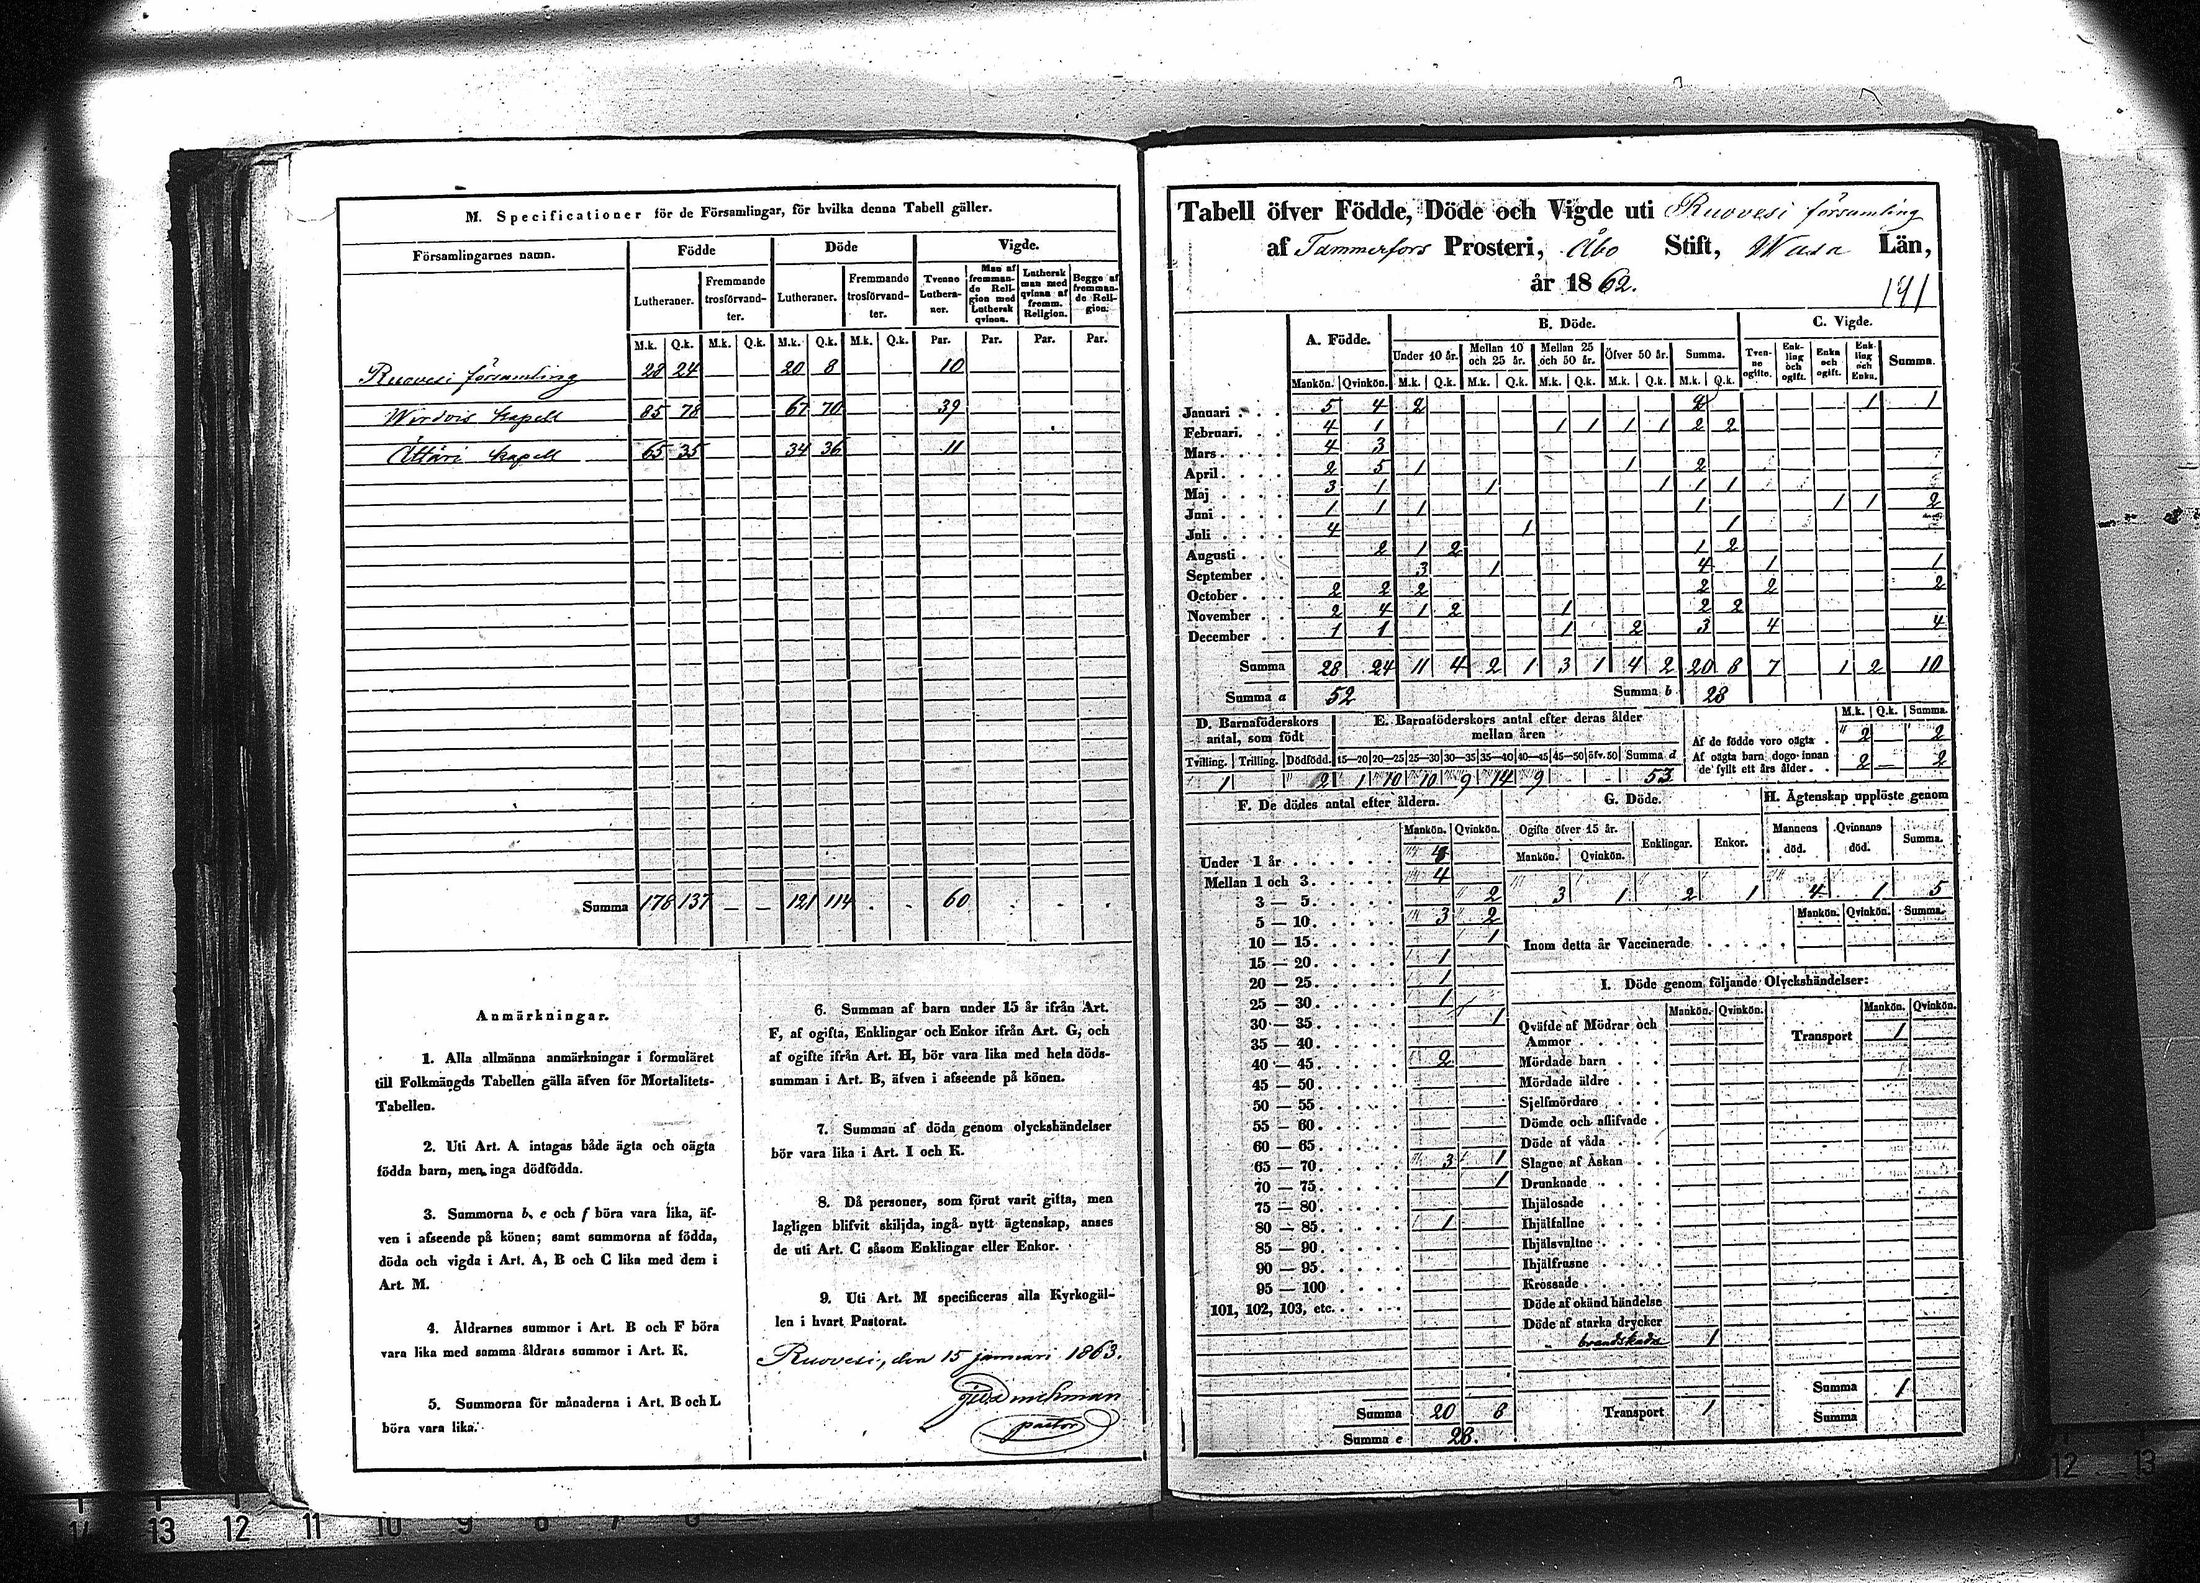 M. Specificationer för de Församlingar, för hvilka denna Tabell gäller.
Församlingarnes namn. Födde Döde Vigde.
Lutheraner. Fremmande trosförvandter. Lutheraner. Fremmande trosförvandter. Tvenne Lutheraner. Man af fremmande Religion med Luthersk qvinna. Luthersk man med qvinna af fremm. Religion. Begge af fremmande Religion.
M.k. Q.k. M.k. Q.k. M.k. Q.k. M.k. Q.k. Par. Par. Par. Par.
Ruovesi församling 28 24 20 8 10
Wirdois kapell 85 78 67 70 39
Ättäri kapell 65 35 34 36 11
Summa 178 137 — — 121 114 60
Anmärkningar.
1. Alla allmänna anmärkningar i formuläret
till Folkmängds Tabellen gälla äfven för Mortalitets-
Tabellen.
2. Uti Art. A intagas både ägta och oägta
födda barn, men inga dödfödda.
3. Summorna b, e och f böra vara lika, äf-
ven i afseende på könen; samt summorna af födda,
döda och vigda i Art. A, B och C lika med dem i
Art. M.
4. Åldrarnes summor i Art. B och F böra
vara lika med samma åldrars summor i Art. K.
5. Summorna för månaderna i Art. B och L
böra vara lika.
6. Summan af barn under 15 år ifrån Art.
F, af ogifta, Enklingar och Enkor ifrån Art. G, och
af ogifte ifrån Art. H, bör vara lika med hela döds-
summan i Art. B, äfven i afseende på könen.
7. Summan af döda genom olyckshändelser
bör vara lika i Art. I och K.
8. Då personer, som förut varit gifta, men
lagligen blifvit skiljda, ingå nytt ägtenskap, anses
de uti Art. C såsom Enklingar eller Enkor.
9. Uti Art. M specificeras alla Kyrkogäl-
len i hvart Pastorat.
Ruovesi, den 15 januari 1863.
pastor
Tabell öfver Födde, Döde och Vigde uti Ruovesi församling
af Tammerfors Prosteri, Åbo Stift, Wasa Län,
år 1862.
191
A. Födde. B. Döde. C. Vigde.
Under 10 år. Mellan 10 och 25 år. Mellan 25 och 50 år. Öfver 50 år. Summa. Tvenne ogifte. Enkling och ogift. Enka och ogift. Enkling och Enka. Summa.
Mankön. Qvinkön. M.k. Q.k. M.k. Q.k. M.k. Q.k. M.k. Q.k. M.k. Q.k.
Januari 5 4 2 2 1 1
Februari. 4 1 1 1 1 1 2 2
Mars 4 3
April 2 5 1 1 2
Maj 3 1 1 1 1 1
Juni 1 1 1 1 1 1 2
Juli 4 1 1
Augusti 2 1 2 1 2
September 3 1 4 1 1
October 2 2 2 2 2 2
November 2 4 1 2 1 2 2
December 1 1 1 2 3 4 4
Summa 28 24 11 4 2 1 3 1 4 2 20 8 7 1 2 10
Summa a 52 Summa b 28
D. Barnaföderskors antal, som födt
E. Barnaföderskors antal efter deras ålder mellan åren
M.k. Q.k. Summa.
Af de födde voro oägta 2 2
Af oägta barn dogo innan de fyllt ett års ålder 2 — 2
Tvilling. Trilling. Dödfödd. 15—20 20—25 25—30 30—35 35—40 40—45 45—50 öfv. 50 Summa d
1 2 1 10 10 9 14 9 53
F. De dödes antal efter åldern.
Mankön. Qvinkön.
Under 1 år
Mellan 1 och 3. 4
3 — 5. 2
5 — 10. 3 2
10 — 15. 1
15 — 20. 1
20 — 25. 1
25 — 30. 1
30 — 35. 1
35 — 40.
40 — 45. 2
45 — 50.
50 — 55.
55 — 60.
60 — 65.
65 — 70. 3 1
70 — 75. 1
75 — 80.
80 — 85. 1
85 — 90.
90 — 95.
95 — 100
101, 102, 103, etc.
Summa 20 8
Summa e 28.
G. Döde.
Ogifte öfver 15 år. Enklingar. Enkor.
Mankön. Qvinkön.
3 1 2 1
H. Ägtenskap upplöste genom
Mannens död. Qvinnans död. Summa.
4 1 5
Mankön. Qvinkön. Summa.
Inom detta år Vaccinerade
I. Döde genom följande Olyckshändelser:
Mankön. Qvinkön. Mankön. Qvinkön.
Qväfde af Mödrar och Ammor
Transport 1
Mördade barn
Mördade äldre
Sjelfmördare
Dömde och aflifvade
Döde af våda
Slagne af Åskan
Drunknade
Ihjälosade
Ihjälfallne
Ihjälsvultne
Ihjälfrusne
Krossade
Döde af okänd händelse
Döde af starka drycker
" brandskada 1
Summa 1
Transport 1 Summa
14 13 12 11 10 9 8 7 8
12 13